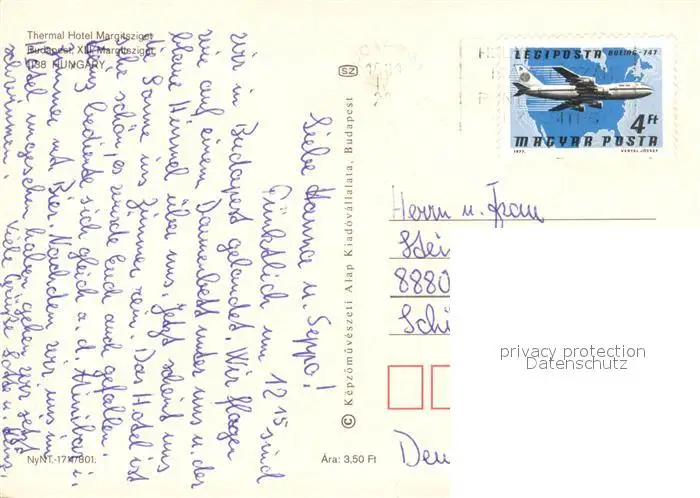 Thermal Hotel Margitsziget
Budapest, XIII. Margitsziget
1138 HUNGARY
Liebe Hanna u. Seppo!
Pünktlich um 12.15 sind
wir in Budapest gelandet. Wir flogen
wie auf einem Daunenbett unter uns u. der
blaue Himmel über uns. Jetzt scheint uns
die Sonne ins Zimmer rein. Das Hotel ist
sehr schön, es würde Euch auch gefallen.
bediente sich gleich a. d. Minibar i.
Zimmer mit Bier. Nachdem wir uns im
Hotel umgesehen haben gehen wir jetzt
schwimmen. Viele Grüße Lotte u.
NyNT.-17147801.
Ára: 3,50 Ft
© Képzőművészeti Alap Kiadóvállalata, Budapest
SZ
LÉGIPOSTA BOEING-747
4 Ft
MAGYAR POSTA
1977. VERTEL JÓZSEF
Herrn u. Frau
Stei
8880
Schi
Deu
privacy protection
Datenschutz